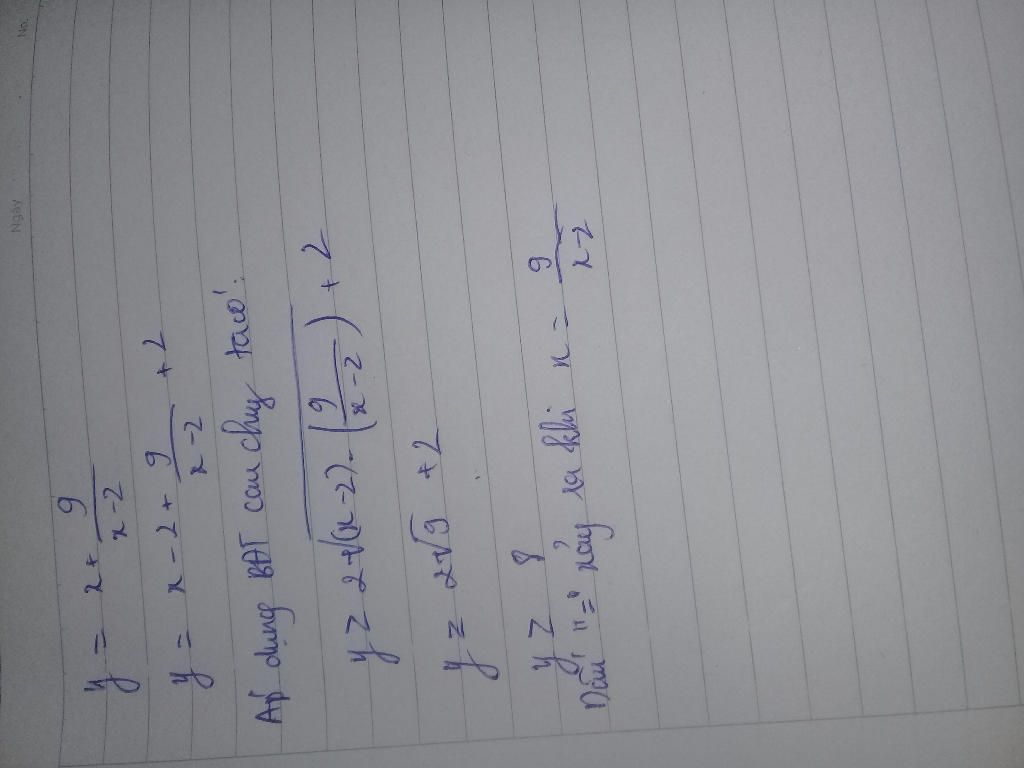 No.
Ngày
y = x + 9/(x-2)
y = x - 2 + 9/(x-2) + 2
Áp dụng BĐT cauchuy taco':
y ≥ 2√((x-2).(9/(x-2))) + 2
y ≥ 2√9 + 2
y ≥ 8
Dấu "=" xảy ra khi x = 9/(x-2)